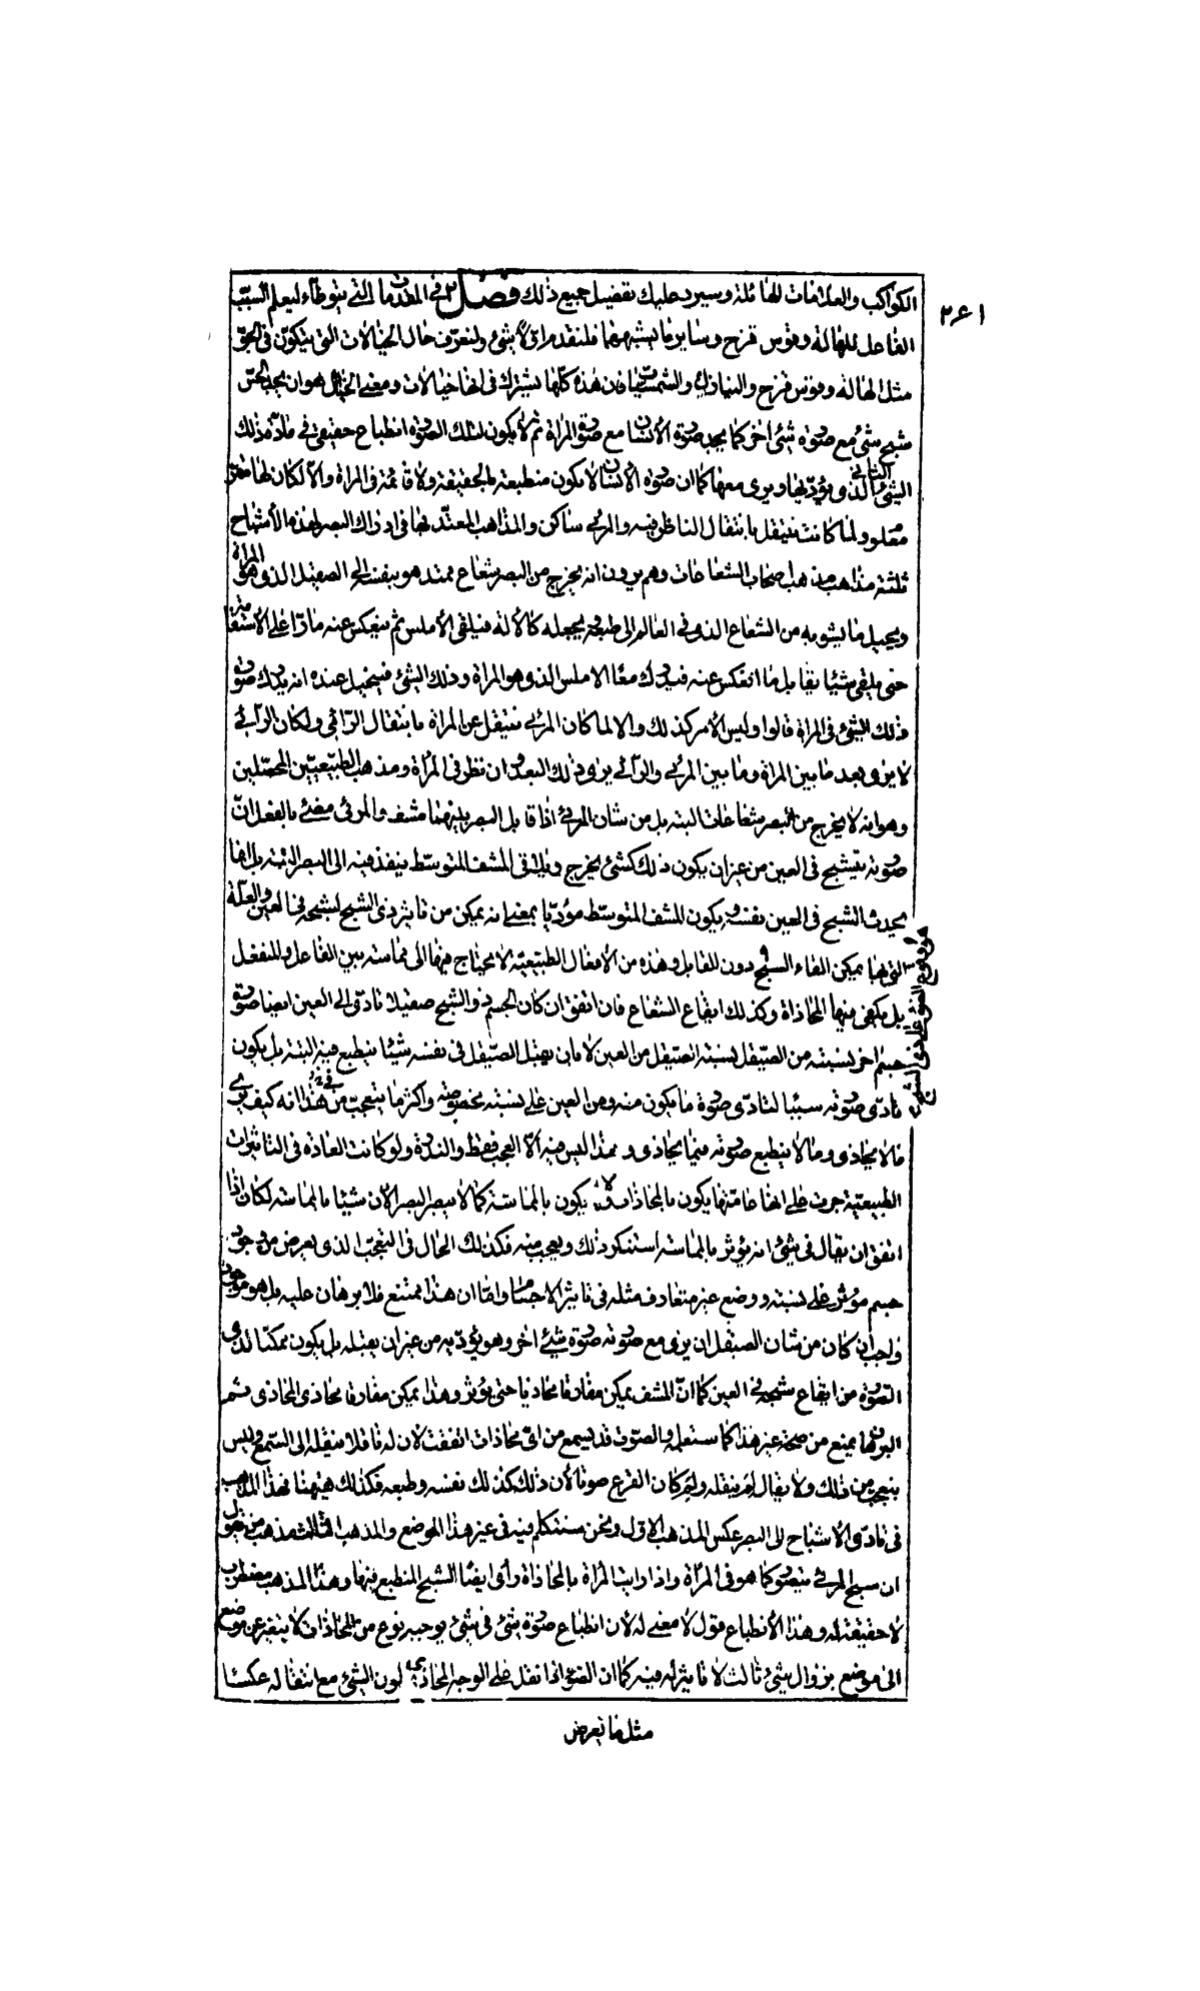 ٢٤١
الكواكب والعلامات الهائلة وسيرد عليك تفصيل جميع ذلك فصل ٢ في المقدمات التي يتوطاء ليعلم السبب
الفاعل للهالة وقوس قزح وساير ما يشبههما فلنقدم اولا شئ ولنعرف حال الخيالات التي يتكون في الجو
مثل الهالة وقوس قزح والنيازك والشمسيات فان هذه كلها يشترك في انها خيالات ومعنى الخيال هو ان يجد الحس
شبح شئ مع صورة شئ اخر كما يجد صورة الانسان مع صورة المرآة ثم لا يكون لتلك الصورة انطباع حقيقي في مادة ذلك
الشئ الثاني الذي يؤديها ويرى معها كما ان صورة الانسان لا يكون منطبعة بالحقيقة ولا قائمة في المراة والا لكان لها مقر
معلوم ولما كانت ينتقل بانتقال الناظر فيه والمرئي ساكن والمذاهب المعتد بها في ادراك البصر لهذه الأشباح
ثلثة مذاهب مذهب اصحاب الشعاعات وهم يرون انه يخرج من البصر شعاع ممتد هو بنفسه الى الصقيل الذي هو المرآة
ويحيل ما يشوبه من الشعاع الذي في العالم الى طبعه يجعله كالألة فيلقى الأملس ثم ينعكس عنه مارا على الأستقامة
حتى يلقى شيئا يقابل ما انعكس عنه فيدرك معا الاملس الذي هو المراة وذلك الشئ فيتخيل عنده انه يدرك صورة
ذلك الشئ في المراة قالوا وليس الأمر كذلك والا لما كان المرئي ينتقل عن المراة بانتقال الرائي ولكان الرائي
لا يرى بعد ما بين المراة وما بين المرئي والرائي يرى ذلك البعد ان نظر في المرأة ومذهب الطبيعيين المحصلين
وهو انه لا يخرج من البصر شعاعات البتة بل من شان المرئي اذا قابل البصر بينهما مشف والمرئي مضئ بالفعل ان
صورته يتشبح في العين من غير ان يكون ذلك كشئ يخرج ويلاقى المشف المتوسط ينفذ فيه الى البصر البتة بل انما
يحدث الشبح في العين نفسه ويكون المشف المتوسط مؤديا بمعنى انه يمكن من تاثير ذي الشبح لشبحه في العين والعلة
التي بها يمكن القاء الشبح هو وقوع الضوء على ذي الشبح دون القابل وهذه من الأفعال الطبيعية لا يحتاج فيها الى مماسة بين الفاعل والمنفعل
بل يكفي فيها المحاذاة وكذلك ايقاع الشعاع فان اتفق ان كان الجسم ذو الشبح صقيلا تادى الى العين ايضا صورة
جسم اخر نسبته من الصيقل نسبة الصيقل من العين لا بان يقبل الصيقل في نفسه شيئا ينطبع فيه البتة بل يكون
تادى صورته سببا لتادى صورة ما يكون منه ومن العين على نسبة مخصوصة واكثر ما يتعجب من هذا انه كيف يرى
ما لا يحاذى وما لا ينطبع صورته فيما يحاذى وهذا ليس فيه الا العجب فقط والندرة ولو كانت العادة في التاثيرات
الطبيعية جرت على انها عامتها يكون بالمحاذاة لا يكون بالمماسة كما لا يبصر البصر الآن شيئا بالمماسة لكان اذا
اتفق ان يقال في شئ انه يؤثر بالمماسة استنكر ذلك وتعجب منه فكذلك الحال في التعجب الذي يعرض من وجود
جسم مؤثر على نسبة ووضع غير متعارف مثله في تاثير الاجسام واما ان هذا ممتنع فلا برهان عليه بل هو موجود
واجب ان كان من شان الصيقل ان يرى مع صورته صورة شئ اخر وهو يؤديه من غير ان يقبله بل يكون ممكنا لذي
الصورة من ايقاع شبحه في العين كما ان المشف يمكن مفارقا محاذيا حتى يؤثر وهذا يمكن مفارقا محاذى المحاذى ثم
البرهان يمنع من صحة غير هذا كما ستعلمه والصوت قد يسمع من اي محاذاة اتفقت لان له ناقلا ينقله الى السمع وليس
يتعجب من ذلك ولا يقال لم ينقله ولم كان القرع صوتا لأن ذلك كذلك نفسه وطبعه فكذلك هيهنا فهذا المذهب
في تادى الأشباح الى البصر عكس المذهب الاول ونحن سنتكلم فيه في غير هذا الموضع والمذهب الثالث مذهب من يقول
ان شبح المرئي يتصور كما هو في المرآة واذا رايت المرأة بالمحاذاة رأى ايضا الشبح المنطبع فيها وهذا المذهب مضطرب
لا حقيقة له وهذا الأنطباع قول لا معنى له لان انطباع صورة شئ في شئ يوجبه نوع من المحاذاة لا يتغير عن موضع
الى موضع بزوال شئ ثالث لا تاثير له فيه كما ان الضوء اذا نقل على الوجه المحاذى لون الشئ مع انتقاله عكسا
مثل ما يعرض